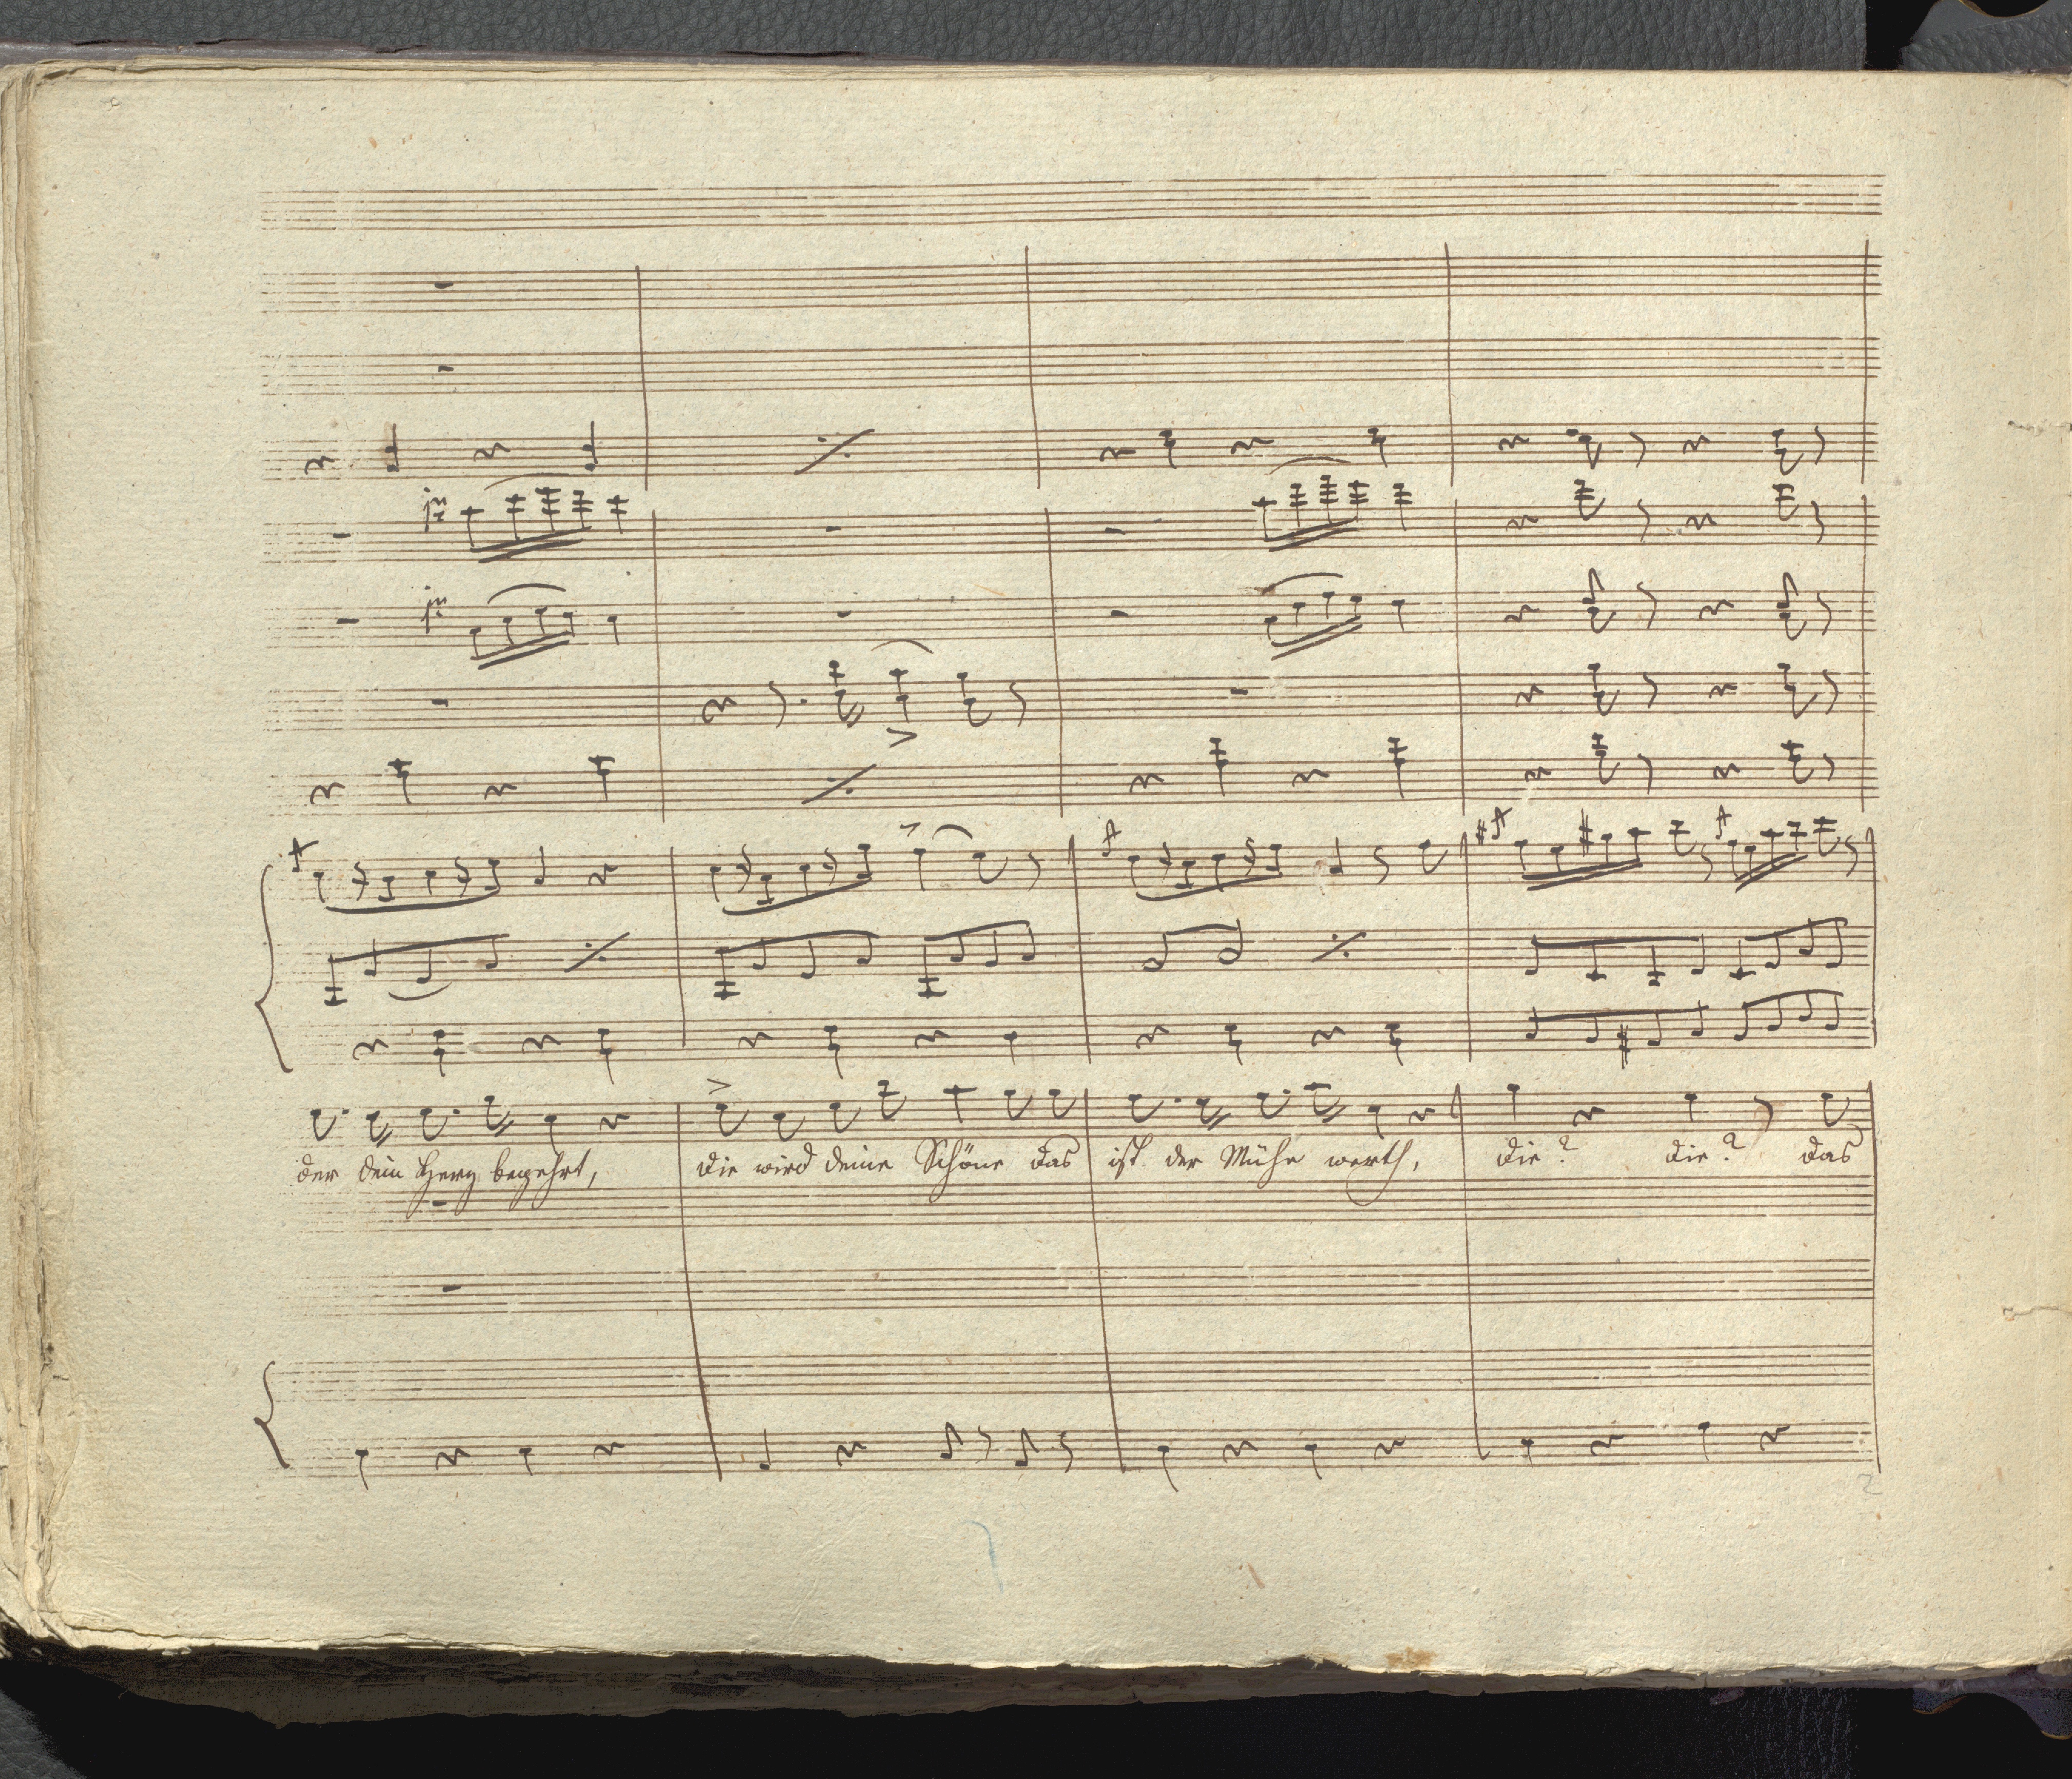 der dein Herz begehrt, die wird deine Schöne das ist der Mühe werth, die? die? das
2